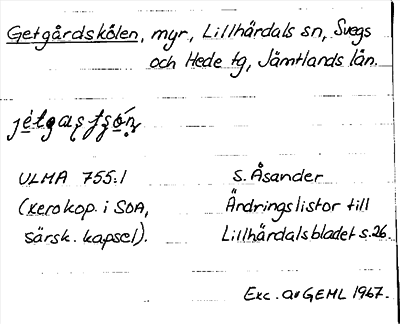 Getgårdskölen, myr, Lillhärdals sn, Svegs
och Hede tg, Jämtlands län.
ULMA 755:1
S. Åsander
(Xerokop. i SOA,
Ändringslistor till
särsk. kapsel).
Lillhärdalsbladet s.26.
Exc. av GEHL 1967.